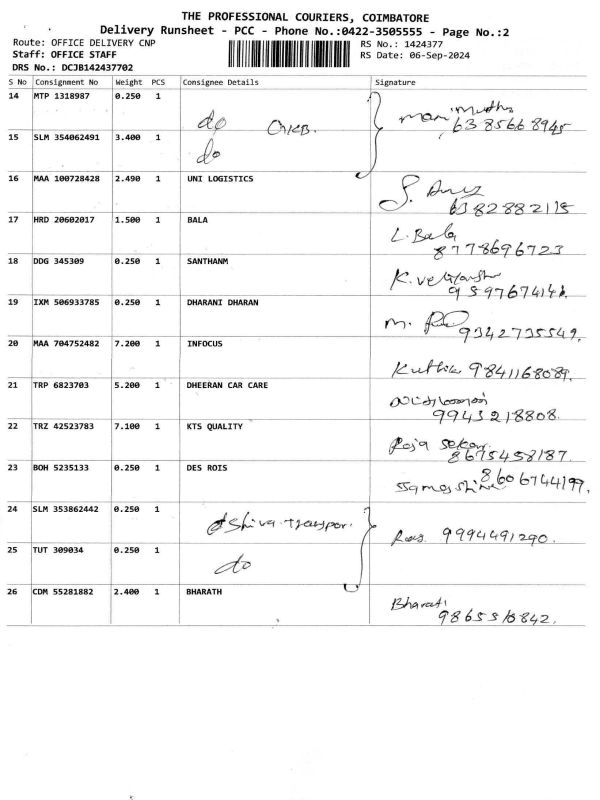 THE PROFESSIONAL COURIERS, COIMBATORE
Delivery Runsheet - PCC - Phone No.:0422-3505555 - Page No.:2
Route: OFFICE DELIVERY CNP
RS No.: 1424377
Staff: OFFICE STAFF
RS Date: 06-Sep-2024
DRS No.: DCJB142437702
S No Consignment No Weight PCS Consignee Details Signature
14 MTP 1318987 0.250 1 do
6385668945
15 SLM 354062491 3.400 1 do
16 MAA 100728428 2.490 1 UNI LOGISTICS
6382882115
17 HRD 20602017 1.500 1 BALA L. Bala
8778696723
18 DDG 345309 0.250 1 SANTHANM
19 IXM 506933785 0.250 1 DHARANI DHARAN
9342735549.
20 MAA 704752482 7.200 1 INFOCUS
9841168089.
21 TRP 6823703 5.200 1 DHEERAN CAR CARE
9943218808.
22 TRZ 42523783 7.100 1 KTS QUALITY Raja Sekar
8675458187.
23 BOH 5235133 0.250 1 DES ROIS 8606744199.
24 SLM 353862442 0.250 1 Shiva Transpor.
9994491290.
25 TUT 309034 0.250 1 do
26 CDM 55281882 2.400 1 BHARATH Bharati